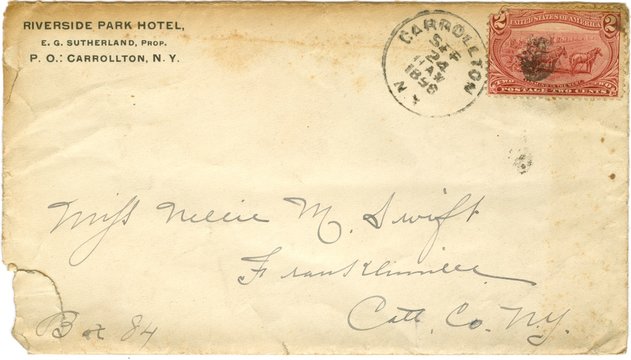 RIVERSIDE PARK HOTEL,
E. G. SUTHERLAND, PROP.
P. O.: CARROLLTON, N. Y.
CARROLLTON
SEP
24
11 AM
1898
N. Y.
2 UNITED STATES OF AMERICA 2
POSTAGE TWO CENTS
Miss Nellie M. Swift
Franklinville
Catt. Co. N.Y.
Box 84